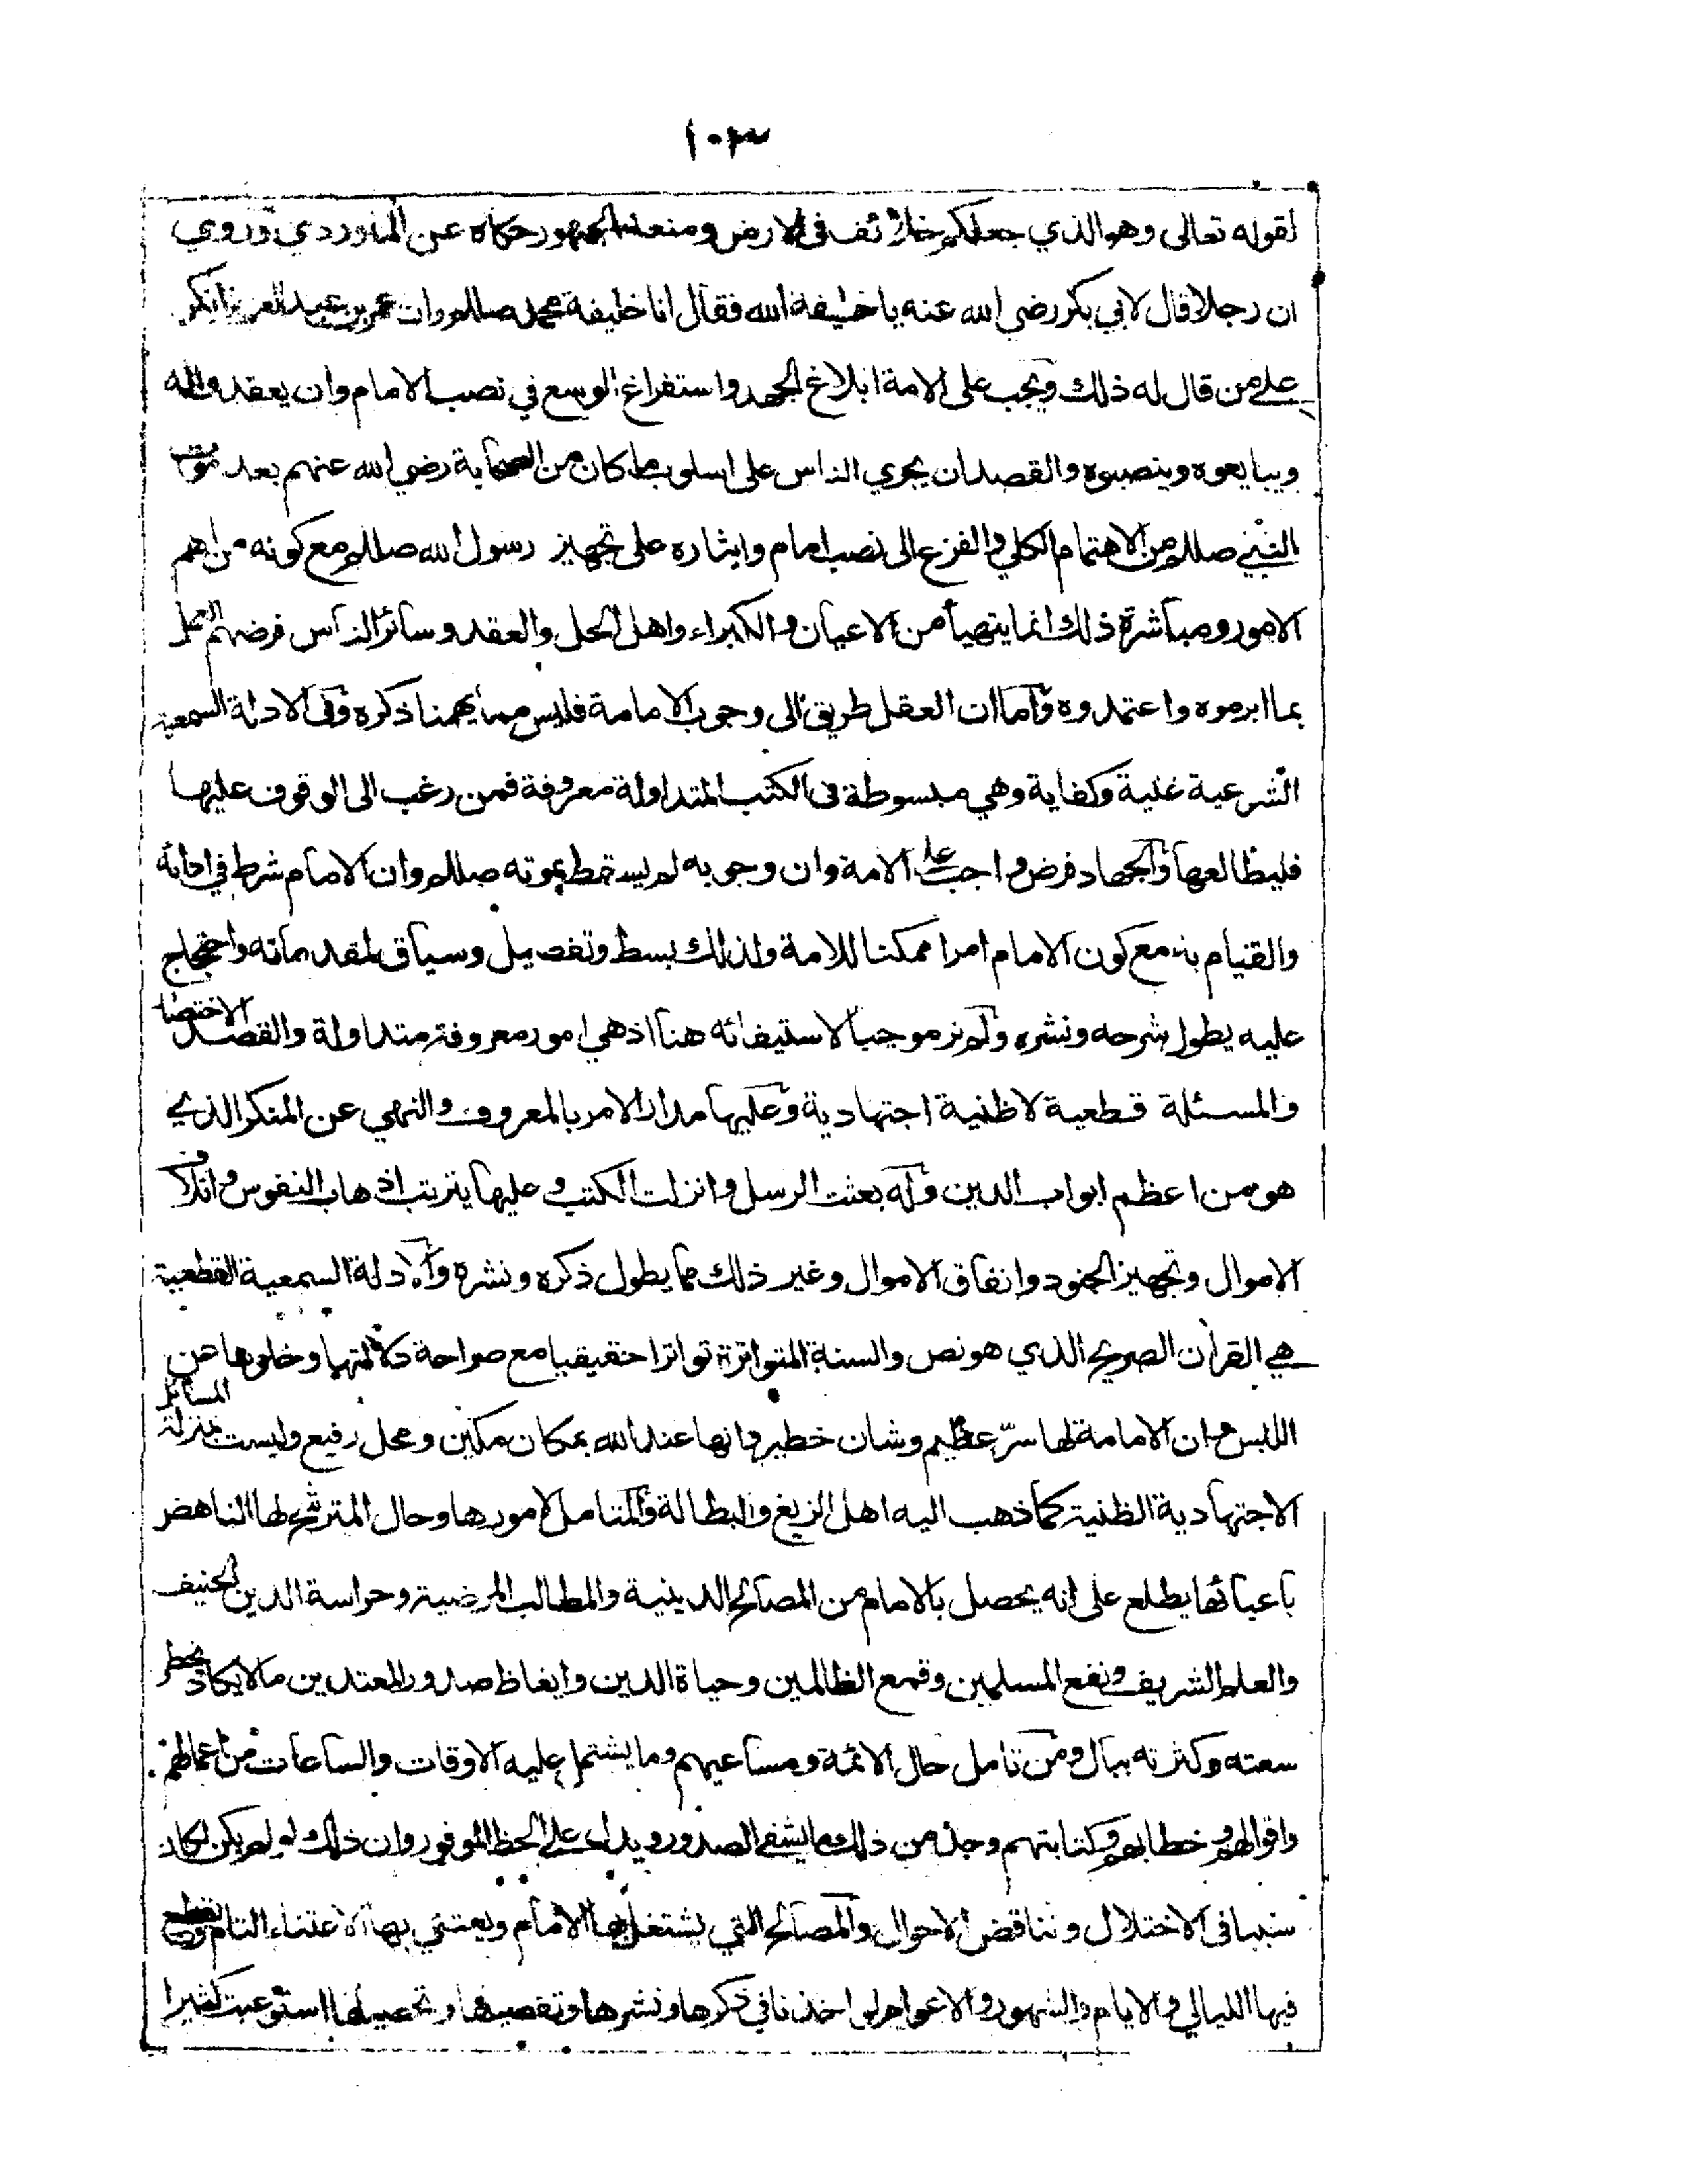 ١٠٣
لقوله تعالى وهو الذي جعلكم خلائف في الارض ومنعه الجمهور حكاه عن الماوردي وروي
ان رجلا قال لابي بكر رضي الله عنه يا خليفة الله فقال انا خليفة محمد صللم وان عمر بن عبد العزيز انكر
على من قال له ذلك ويجب على الامة ابلاغ الجهد واستفراغ الوسع في نصب الامام وان يعقدوا له
ويبايعوه وينصبوه والقصد ان يجري الناس على اسلوب ما كان من الصحابة رضي الله عنهم بعد موت
النبي صللم من الاهتمام الكلي والفزع الى نصب امام وايثاره على تجهيز رسول الله صللم مع كونه من اهم
الامور ومباشرة ذلك انما يتهيأ من الاعيان والكبراء واهل الحل والعقد وسائر الناس فرضهم العمل
بما ابرموه واعتمدوه واما ان العقل طريق الى وجوب الامامة فليس مما يهمنا ذكره وفي الادلة السمعية
الشرعية غنية وكفاية وهي مبسوطة في الكتب المتداولة معروفة فمن رغب الى الوقوف عليها
فليطالعها والجهاد فرض واجب على الامة وان وجوبه لم يسقط بموته صللم وان الامام شرط في ادائه
والقيام به مع كون الامام امرا ممكنا للامة ولذلك بسط وتفصيل وسياق لمقدماته واحتجاج
عليه يطول شرحه ونشره ولم نر موجبا لاستيفائه هنا اذ هي امور معروفة متداولة والقصد الاختصا
والمسئلة قطعية لا ظنية اجتهادية وعليها مدار الامر بالمعروف والنهي عن المنكر الذي
هو من اعظم ابواب الدين وله بعثت الرسل وانزلت الكتب وعليها يترتب اذهاب النفوس واتلاف
الاموال وتجهيز الجنود وانفاق الاموال وغير ذلك مما يطول ذكره ونشره والادلة السمعية القطعية
هي القرآن الصريح الذي هو نص والسنة المتواترة تواترا حقيقيا مع صراحة دلالتهما وخلوها عن
اللبس وان الامامة لها سرّ عظيم وشان خطير وانها عند الله بمكان مكين ومحل رفيع وليست بمنزلة المسائل
الاجتهادية الظنية كما ذهب اليه اهل الزيغ والبطالة والمتامل لامورها وحال المترشح لها الناهض
باعبائها يطلع على انه يحصل بالامام من المصالح الدينية والمطالب المرضية وحراسة الدين الحنيف
والعلم الشريف ونفع المسلمين وقمع الظالمين وحياة الدين وايغاظ صدور المعتدين ما لا يكاد يخطر
سعته وكثرته ببال ومن تامل حال الائمة ومساعيهم وما يشتمل عليه الاوقات والساعات من اعمالهم
واقوالهم وخطابهم وكتابتهم وجد من ذلك ما يشفي الصدور ويدل على الحظ الموفور وان ذلك لو لم يكن لكان
سببا في الاختلال وتناقض الاحوال والمصالح التي يشتغل بها الامام ويعتني بها الاعتناء التام ويقطع
فيها الليالي والايام والشهور والاعوام لو اخذنا في ذكرها ونشرها وتفصيلها وتحصيلها استوعبت كثيرا